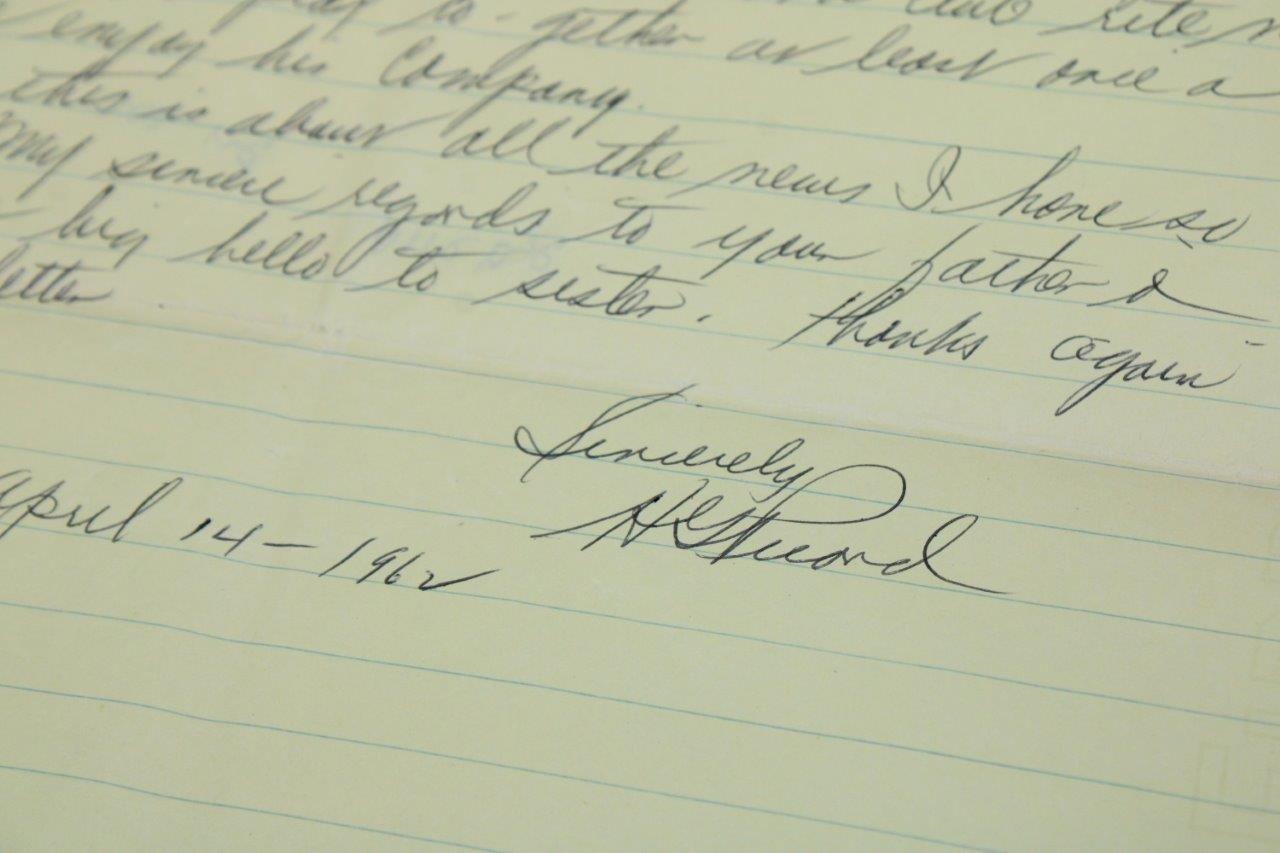 to-gether at least once a
enjoy his company.
this is about all the news I have so
My sincere regards to your father &
big hello to sister. thanks again
letter
Sincerely
H G Picard
April 14-1962